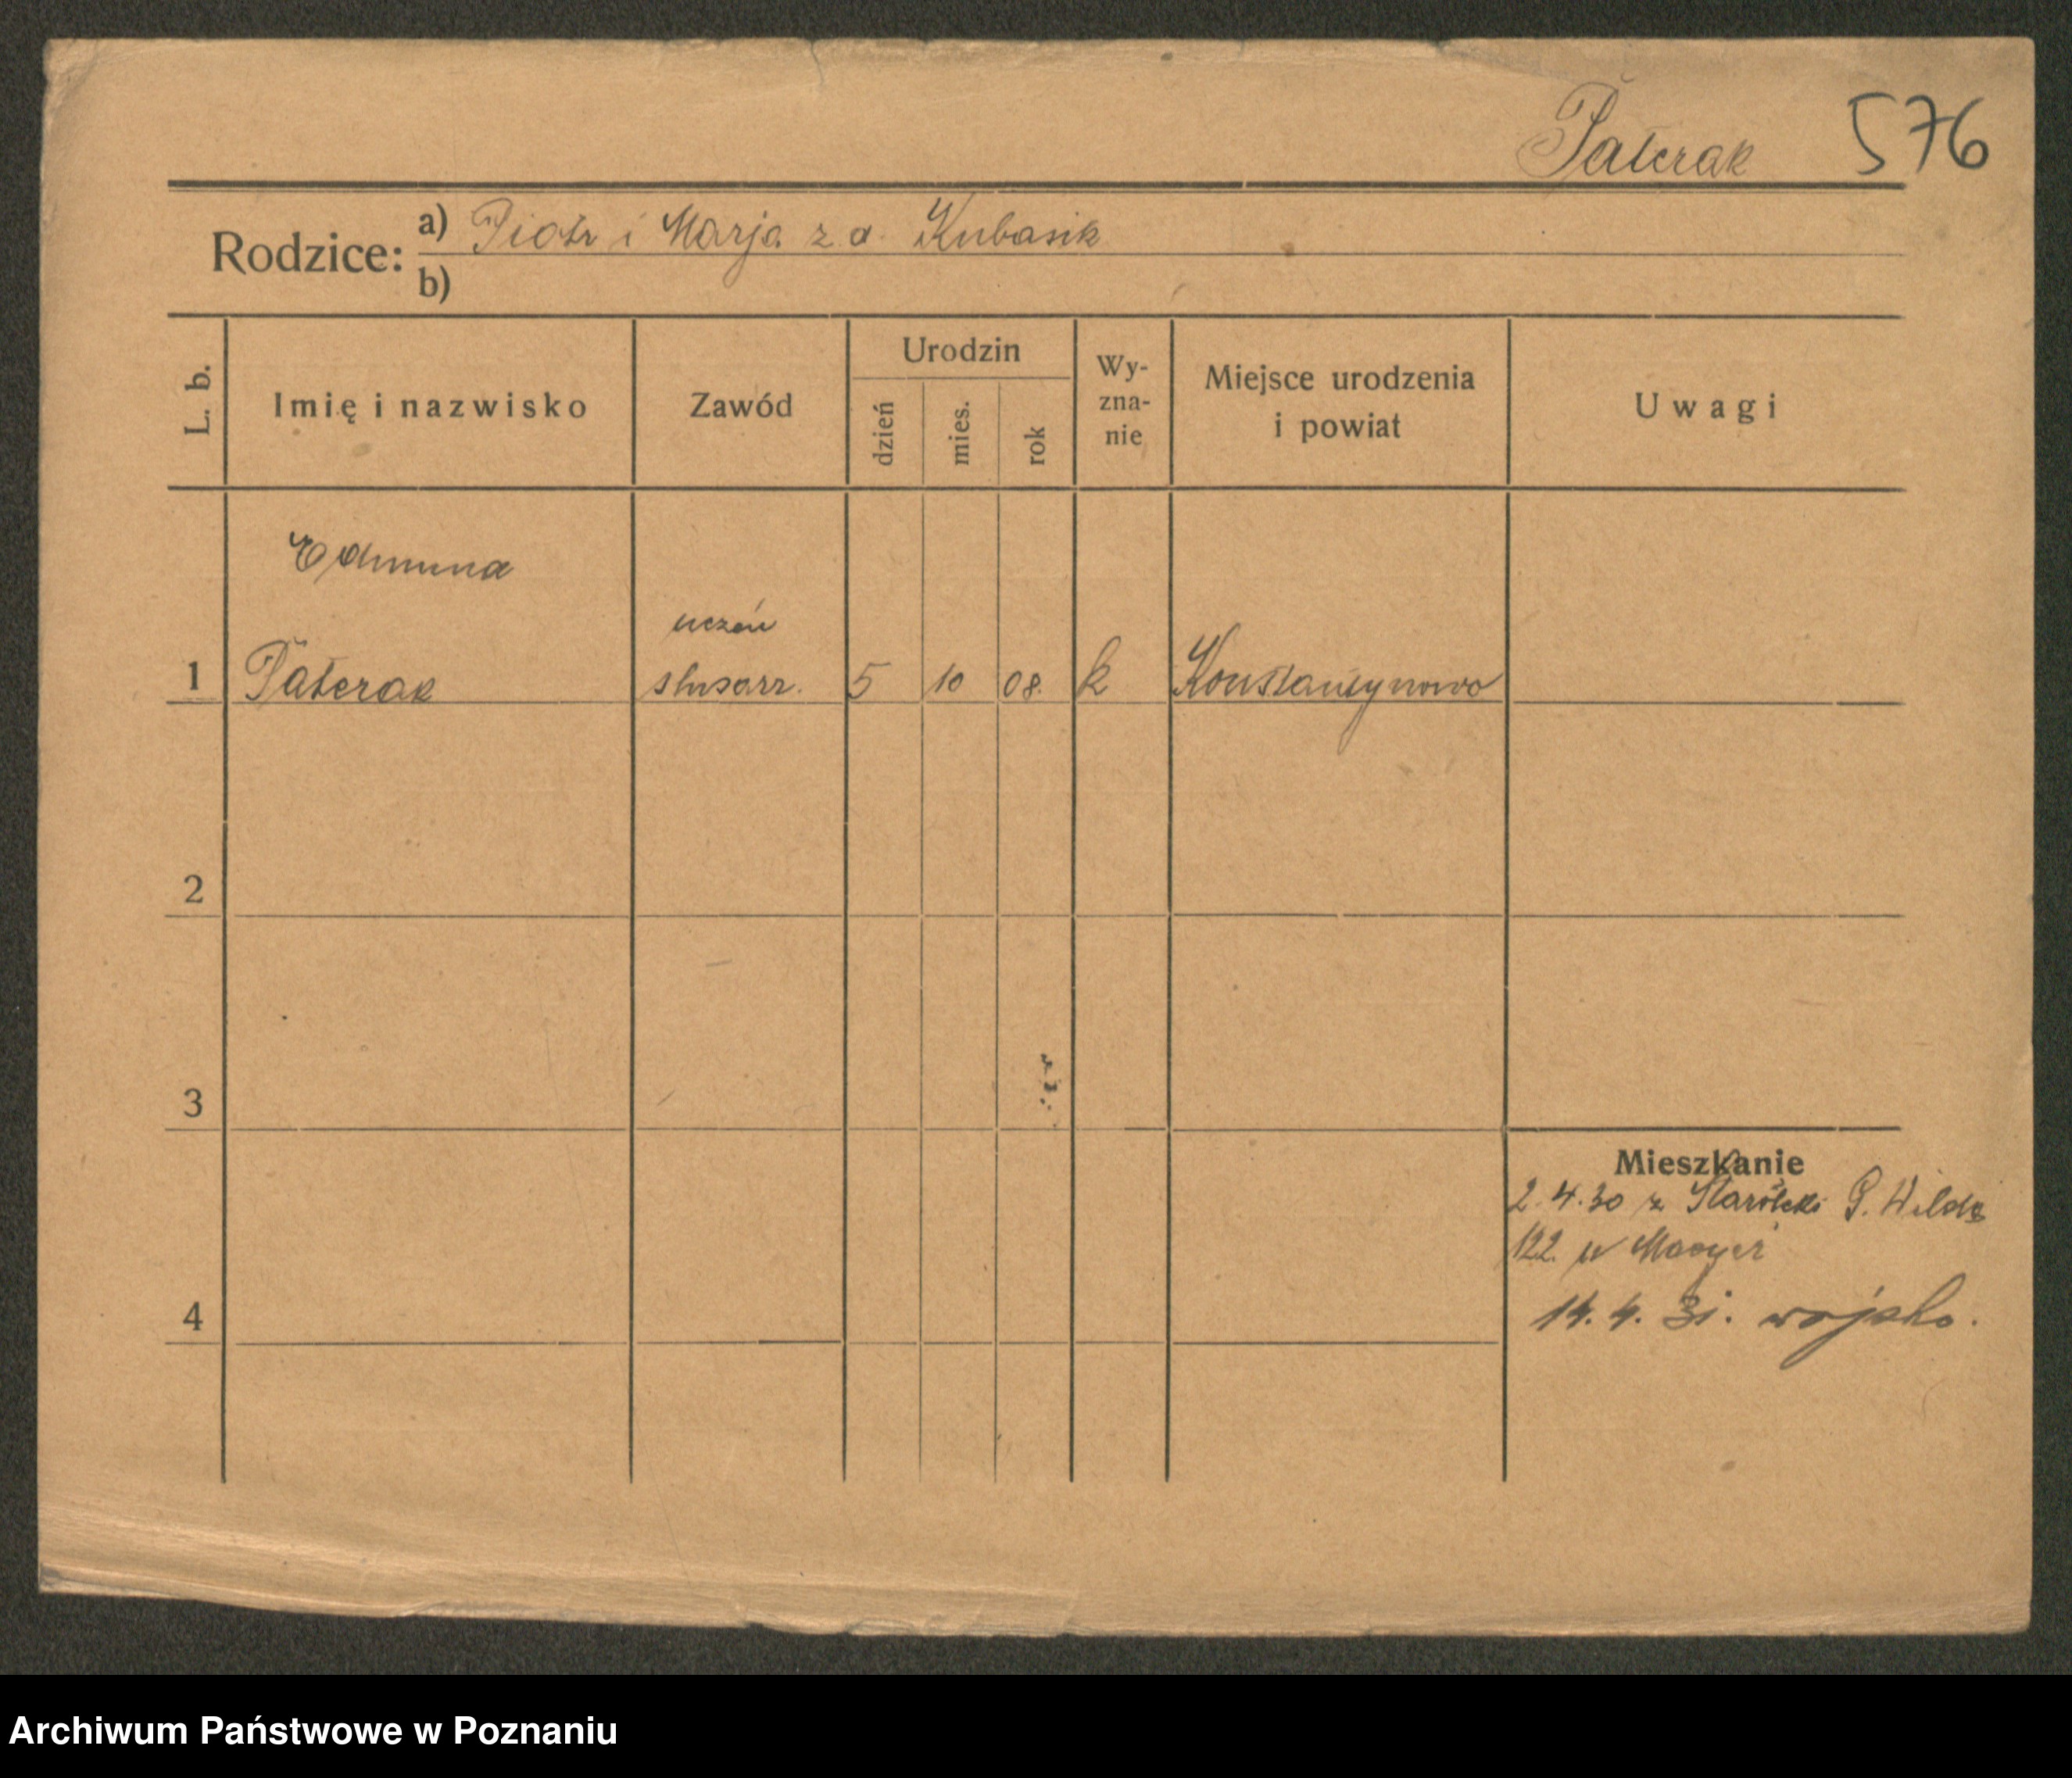 Paterak 576
Rodzice: a) Piotr i Marja z d. Kubasik
b)
L. b. Imię i nazwisko Zawód Urodzin dzień mies. rok Wy-zna-nie Miejsce urodzenia i powiat Uwagi
Edmund
uczeń
1 Paterak slusarz. 5 10 08. k Konstantynowo
2
3
Mieszkanie
2.4.30 z Starołeki G. Wilda
122 u
4 14.4.31. wojsko.
Archiwum Państwowe w Poznaniu